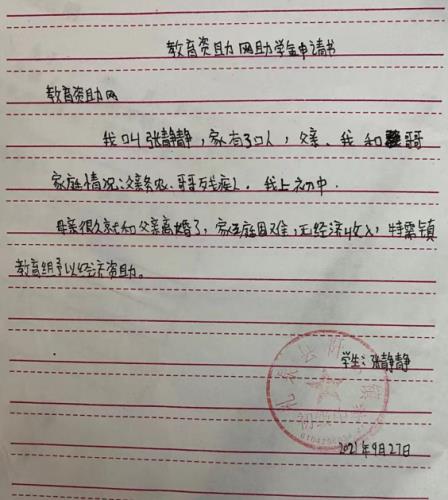 教育资助网助学金申请书
教育资助网
我叫张静静，家有3口人，父亲、我和哥哥
家庭情况：父亲务农、哥哥残疾人。我上初中．
母亲很久就和父亲离婚了，家庭困难，无经济收入，特需镇
教育组予以经济资助。
学生：张静静
2021年9月27日